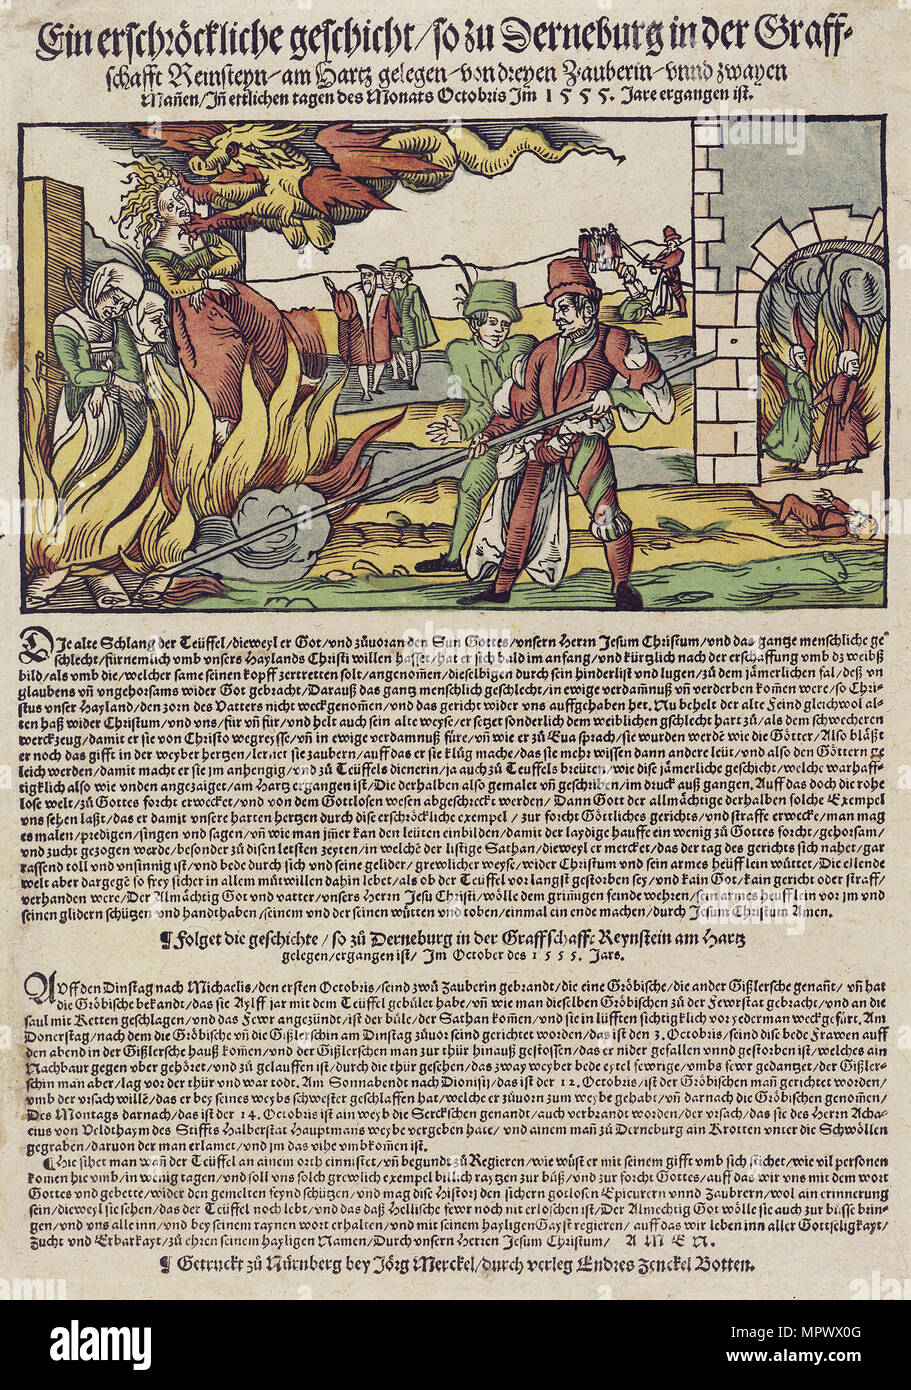 Ein erschröckliche geschicht / so zu Derneburg in der Graff-
schafft Reinsteyn / am Hartz gelegen / von dreyen Zauberin / vnnd zwayen
Mañen / Jñ ettlichen tagen des Monats Octobris Jm 1555. Jare ergangen ist.
DJe alte Schlang der Teüffel / dieweyl er Got / vnd zůuoran den Sun Gottes / vnsern Herrn Jesum Christum / vnd das gantze menschliche ge
schlecht / fürnemlich vmb vnsers Haylands Christi willen hasset / hat er sich bald im anfang / vnd kürtzlich nach der erschaffung vmb dz weibß
bild / als vmb die / welcher same seinen kopff zertretten solt / angenom̃en / dieselbigen durch sein hinderlist vnd lugen / zů dem jämerlichen fal / deß vn
glaubens vñ vngehorsams wider Got gebracht / Darauß das gantz menschlich geschlecht / in ewige verdam̃nuß vñ verderben kom̃en were / so Chri-
stus vnser Hayland / den zorn des Vatters nicht weckgenom̃en / vnd das gericht wider vns auffgehaben het. Nu behelt der alte Feind gleichwol al-
ten haß wider Christum / vnd vns / für vñ für / vnd helt auch sein alte weyse / er setzet sonderlich dem weiblichen gschlecht hart zů / als dem schwecheren
werckzeug / damit er sie von Christo wegreysse / vñ in ewige verdamnuß füre / vñ wie er zů Eua sprach / sie wurden werdē wie die Götter / Also bläßt
er noch das gifft in der weyber hertzen / lernet sie zaubern / auff das er sie klůg mache / das sie mehr wissen dann andere leüt / vnd also den Göttern ge
leich werden / damit macht er sie jm anhengig / vnd zů Teüffels dienerin / ja auch zů Teuffels breütten / wie dise jämerliche geschicht / welche warhaff-
tigklich also wie vnden angezaiget / am Hartz ergangen ist / Die derhalben also gemalet vñ geschriben / im druck auß gangen. Auff das doch die rohe
lose welt / zů Gottes forcht erwecket / vnd von dem Gottlosen wesen abgeschreckt werden / Dann Gott der allmächtige derhalben solche Exempel
vns sehen laßt / das er damit vnsere harten hertzen durch dise erschröckliche exempel / zur forcht Göttliches gerichts / vnd straffe erwecke / man mag
es malen / predigen / singen vnd sagen / vñ wie man jm̃er kan den leüten einbilden / damit der laydige hauffe ein wenig zů Gottes forcht / gehorsam /
vnd zucht gezogen werde / besonder zů disen letsten zeyten / in welchē der listige Sathan / dieweyl er mercket / das der tag des gerichts sich nahet / gar
rassend toll vnd vnsinnig ist / vnd bede durch sich vnd seine gelider / grewlicher weyse / wider Christum vnd sein armes heüfflein wüttet / Die ellende
welt aber dargegē so frey sicher in allem můtwillen dahin lebet / als ob der Teüffel vor langst gestorben sey / vnd kain Got / kain gericht oder straff /
verhanden were / Der Allmächtig Got vnd vatter / vnsers Herrn Jesu Christi / wölle dem grim̃igen feinde wehren / sein armes heufflein vor jm vnd
seinen glidern schützen vnd handthaben / seinem vnd der seinen wütten vnd toben / einmal ein ende machen / durch Jesum Christum Amen.
¶ Folget die geschichte / so zů Derneburg in der Graffschafft Reynstein am Hartz
gelegen / ergangen ist / Jm October des 1555. Jars.
AVff den Dinstag nach Michaelis / den ersten Octobris / seind zwů Zauberin gebrandt / die eine Gröbische / die ander Gißlersche genañt / vñ hat
die Gröbische bekandt / das sie Aylff jar mit dem Teüffel gebůlet habe / vñ wie man dieselben Gröbischen zů der Fewrstat gebracht / vnd an die
saul mit Ketten geschlagen / vnd das Fewr angezündt / ist der bůle / der Sathan kom̃en / vnd sie in lüfften sichtigklich vor yederman weckgefürt. Am
Donrstag / nach dem die Gröbische vñ die Gißlerschin am Dinstag zůuor seind gerichtet worden / das ist den 3. Octobris / seind dise bede Frawen auff
den abend in der Gißlersche hauß kom̃en / vnd der Gißlerschen man zur thür hinauß gestossen / das er nider gefallen vnnd gestorben ist / welches ain
Nachbaur gegen vber gehöret / vnd zů gelauffen ist / durch die thür gesehen / das zway weyber bede eytel fewrige / vmbs fewr gedantzet / der Gißler-
schin man aber / lag vor der thür vnd war todt. Am Sonnabendt nach Dionisij / das ist der 12. Octobris / ist der Gröbischen mañ gerichtet worden /
vmb der vrsach willē / das er bey seines weybs schwester geschlaffen hat / welche er zůuorn zum weybe gehabt / vñ darnach die Gröbischen genom̃en /
Des Montags darnach / das ist der 14. Octobris ist ain weyb die Serckschen genandt / auch verbrandt worden / der vrsach / das sie des Herrn Acha-
cius von Veldthaym des Stiffts Halberstat Hauptmans weybe vergeben hate / vnd ainem mañ zů Derneburg ain Krotten vnter die Schwöllen
gegraben / daruon der man erlamet / vnd jm das vihe vmbkomen ist.
¶ Hie sihet man wañ der Teüffel an ainem orth einnistet / vñ begundt zů Regieren / wie wüst er mit seinem gifft vmb sich stichet / wie vil personen
komen hie vmb / in wenig tagen / vnd soll vns solch grewlich exempel billich raytzen zur bůß / vnd zur forcht Gottes / auff das wir vns mit dem wort
Gottes vnd gebette / wider den gemelten feynd schützen / vnd mag dise Histori den sichern gotlosen Epicurern vnnd Zaubrern / wol ain erinnerung
sein / dieweyl sie sehen / das der Teüffel noch lebt / vnd das daß Hellische fewr noch nit erloschen ist / Der Almechtig Got wölle sie auch zur bůsse brin-
gen / vnd vns alle inn / vnd bey seinem raynen wort erhalten / vnd mit seinem hayligen Gayst regieren / auff das wir leben inn aller Gottseligkayt /
Zucht vnd Erbarkayt / zů ehren seinem hayligen Namen / Durch vnsern Herren Jesum Christum / A M E N.
¶ Getruckt zů Nürnberg bey Jörg Merckel / durch verleg Endres Zenckel Botten.
alamy
Image ID: MPWX0G
www.alamy.com